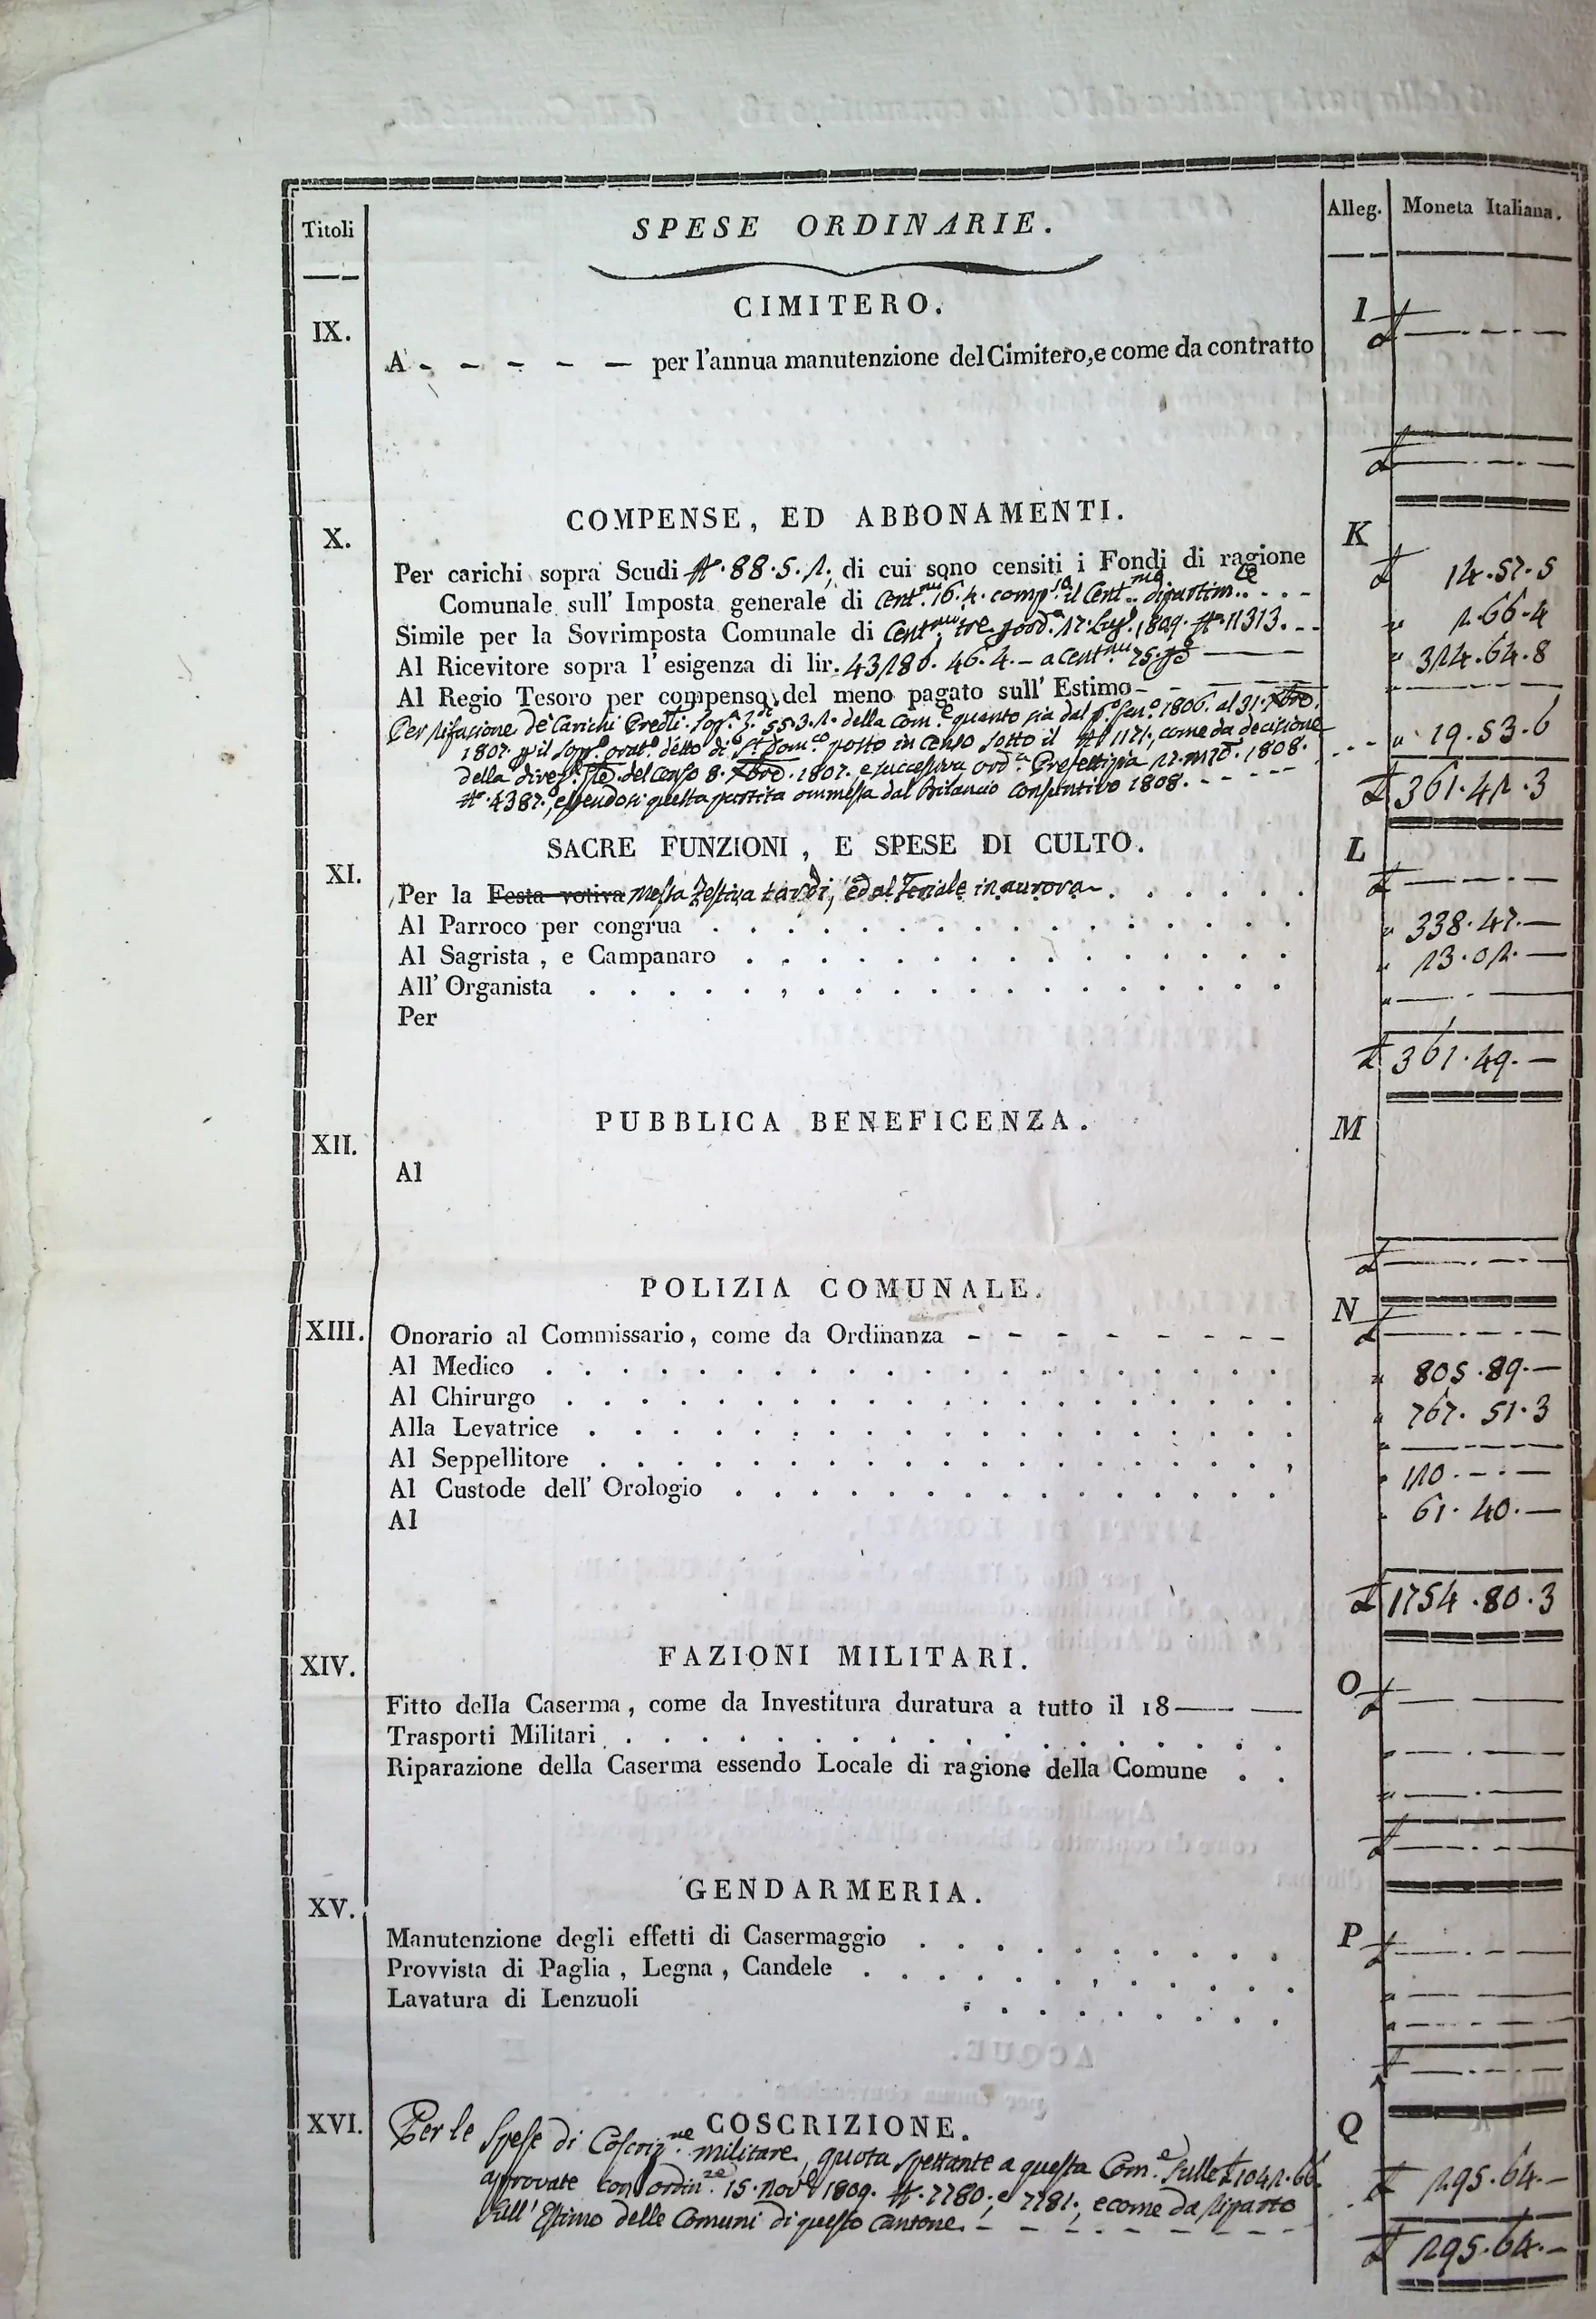 Titoli
SPESE ORDINARIE.
Alleg.
Moneta Italiana.
CIMITERO.
IX.
I
A - - - - - per l'annua manutenzione del Cimitero, e come da contratto
£ — . - . —
£ — . - . —
COMPENSE, ED ABBONAMENTI.
X.
K
Per carichi sopra Scudi N.° 88.5.2. di cui sono censiti i Fondi di ragione
Comunale sull' Imposta generale di Cent.mi 16.4. comp.so il Cent.mo dipartim.le £ 14.57.5
Simile per la Sovrimposta Comunale di Cent.mi tre ord.a 17. Lug.o 1809. N.° 11313. " 2.66.4
Al Ricevitore sopra l' esigenza di lir. 43286.46.4. — a Cent.mi 75. " 324.64.8
Al Regio Tesoro per compenso del meno pagato sull' Estimo
Per rifusione de' Carichi Pred.ti sop.a 55.3.2. della Com.e quanto sia dal p.o Gen.o 1806. al 31. Xbre
1807. il sop.o orat.o detto di S. Dom.co posto in Censo sotto il N.° 1171, come da decisione " 19.53.6
della del Censo 8. Xbre 1807. e successiva ord.a Prefettizia 1808.
N.° 4387. essendosi questa partita ommessa dal Bilancio Consuntivo 1808. £ 361.42.3
SACRE FUNZIONI, E SPESE DI CULTO.
XI.
L
Per la Festa votiva Messa Festiva tardi, ed al Feriale in aurora . . . . . £ — . - . —
Al Parroco per congrua . . . . . " 338.47.—
Al Sagrista, e Campanaro . . . . . " 23.02.—
All' Organista . . . . . " — . —
Per
£ 361.49.—
PUBBLICA BENEFICENZA.
XII.
M
Al
£ — . - . —
POLIZIA COMUNALE.
XIII.
N
Onorario al Commissario, come da Ordinanza - - - - - £ — . - . —
Al Medico . . . . . " 805.89.—
Al Chirurgo . . . . . " 767.51.3
Alla Levatrice . . . . . " — - —
Al Seppellitore . . . . . " 120.-.—
Al Custode dell' Orologio . . . . . " 61.40.—
Al
£ 1754.80.3
FAZIONI MILITARI.
XIV.
O
Fitto della Caserma, come da Investitura duratura a tutto il 18 — — £ — —
Trasporti Militari . . . . . " — . - . —
Riparazione della Caserma essendo Locale di ragione della Comune . . " — . —
£ — . - . —
GENDARMERIA.
XV.
P
Manutenzione degli effetti di Casermaggio . . . . . £ — . - . —
Provvista di Paglia, Legna, Candele . . . . . " — . - . —
Lavatura di Lenzuoli . . . . . " — . - . —
£ — . - . —
XVI.
COSCRIZIONE.
Q
Per le Spese di Coscriz.ne militare, quota spettante a questa Com.e sulle £ 1042.66
approvate con ordin.ze 15. Nov.e 1809. N. 7780; e 7781; e come da riparto £ 295.64.—
sull' Estimo delle Comuni di questo Cantone. - - - -
£ 295.64.—